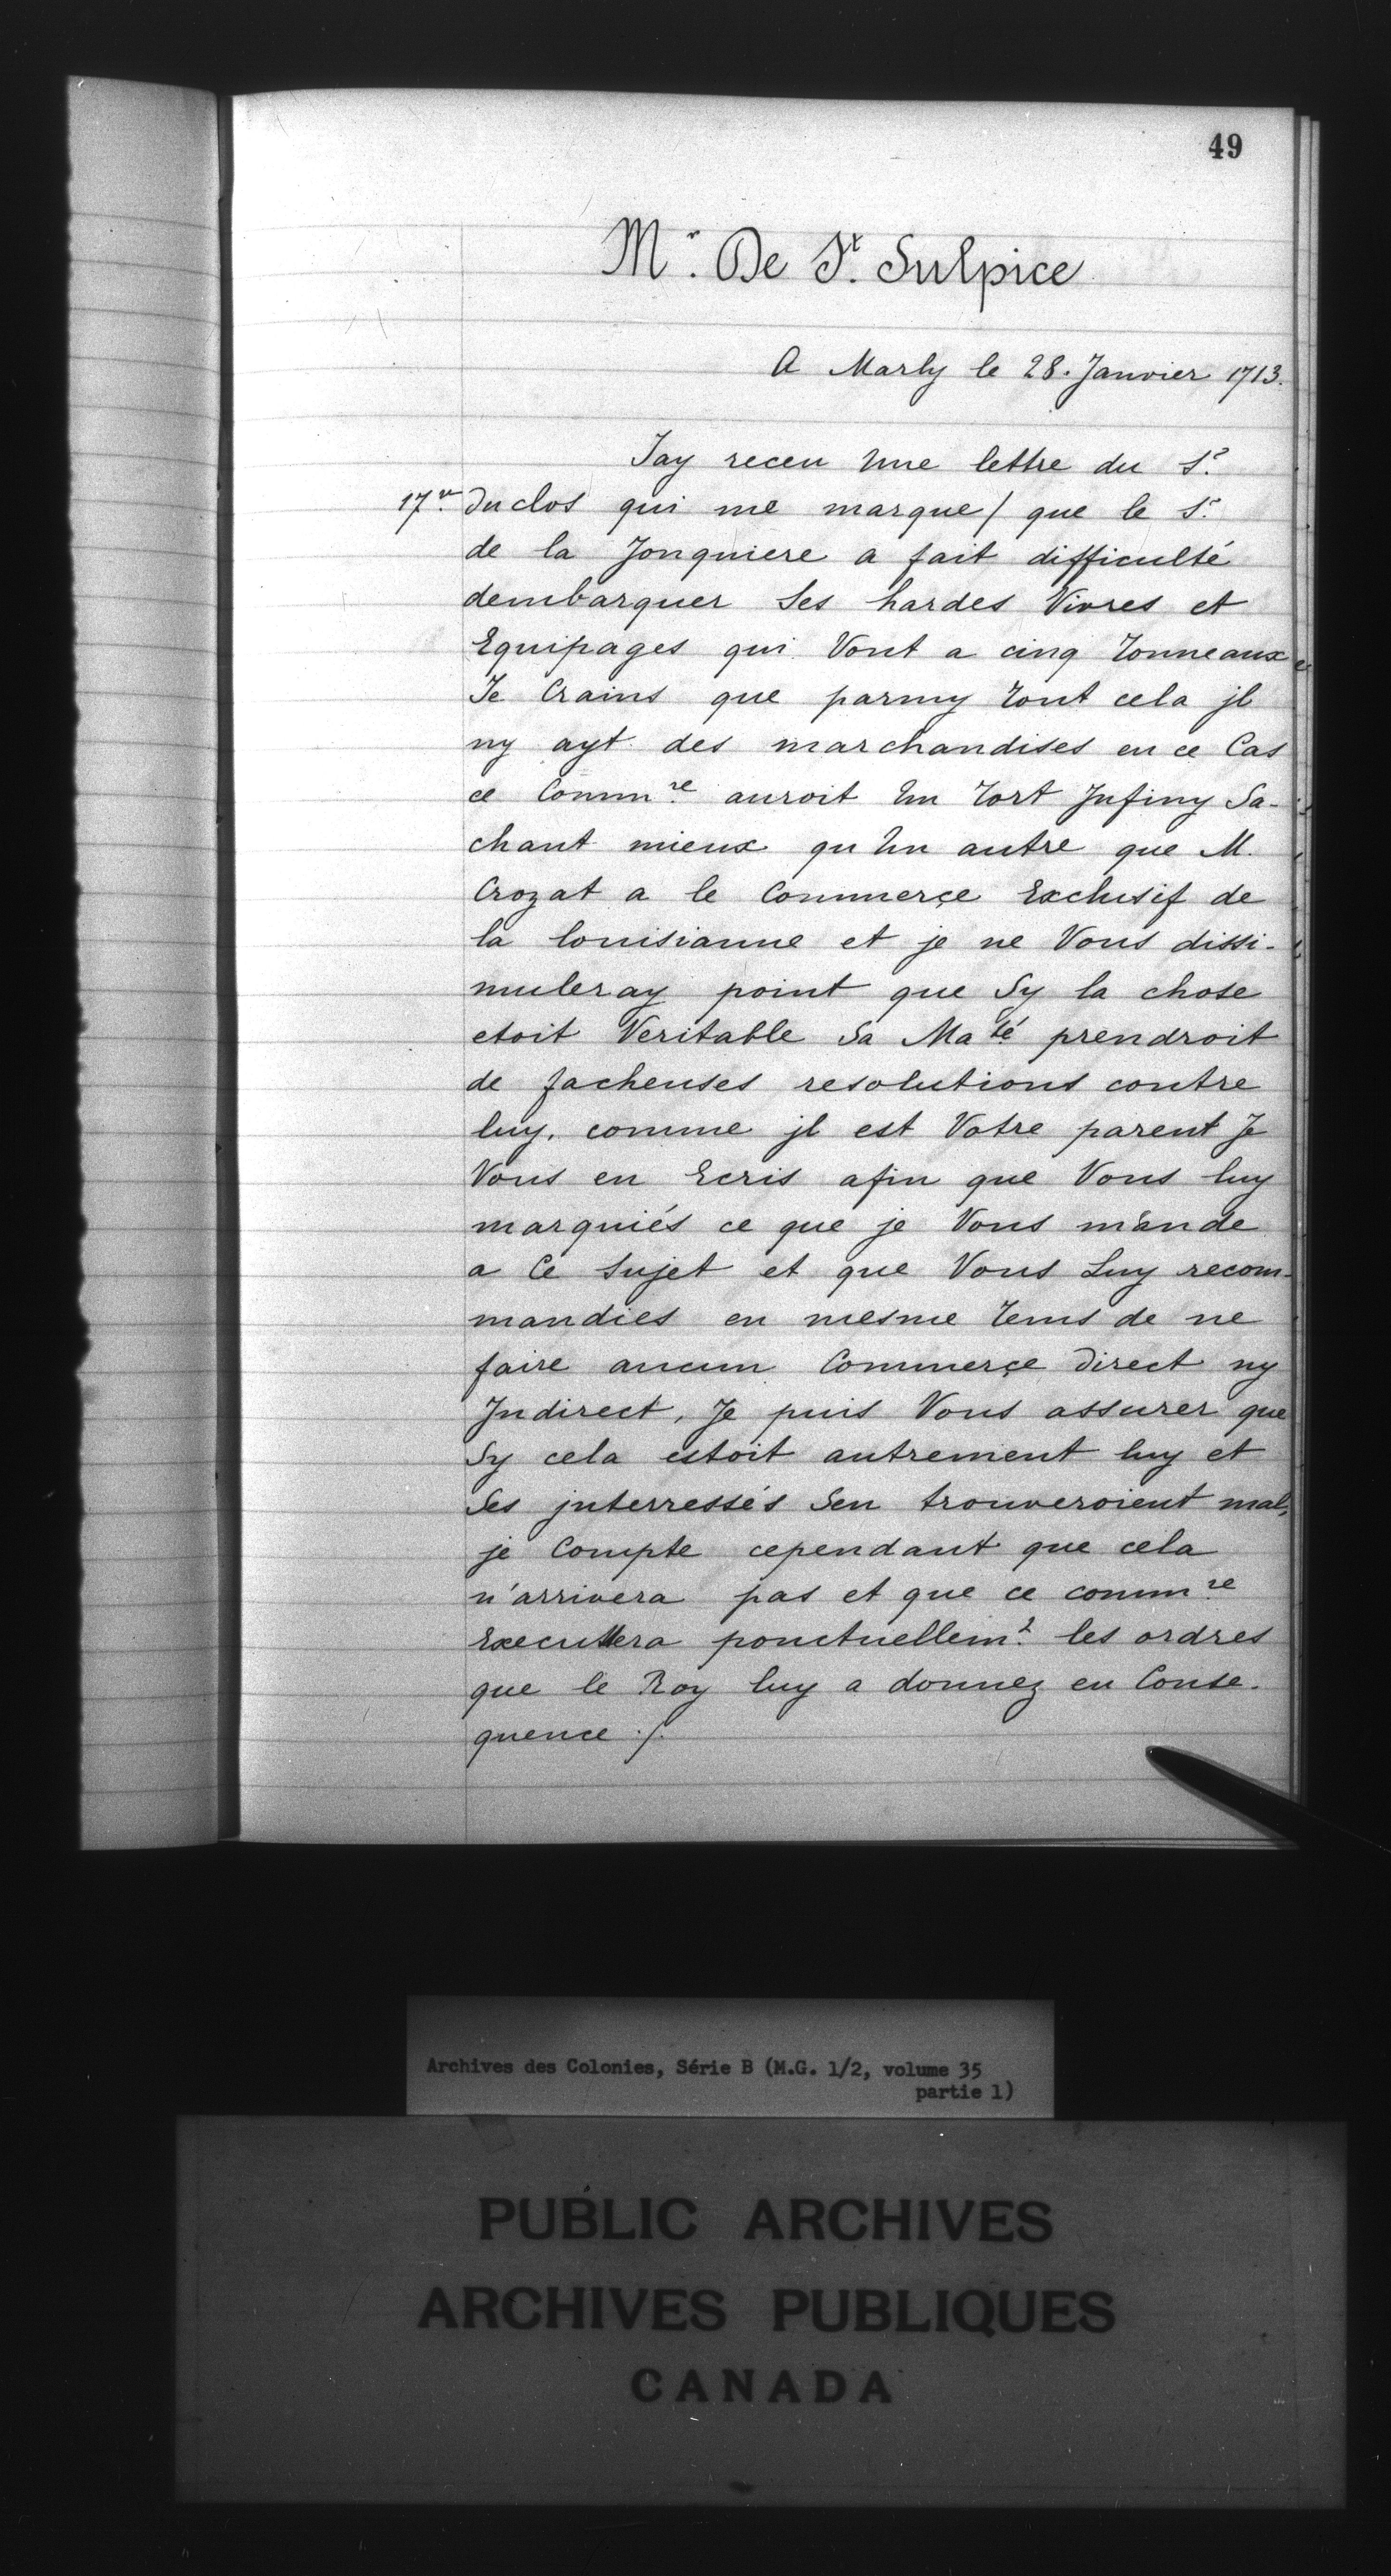 49
Mr. De St. Sulpice
A Marly le 28. Janvier 1713.
Jay receu Une lettre du Sr.
17.vo Duclos qui me marque / que le Sr.
de la Jonquiere a fait difficulté
dembarquer Ses hardes Vivres et
Equipages qui Vont a cinq Tonneaux
Je Crains que parmy Tout cela jl
ny ayt des marchandises en ce Cas
ce Commre. auroit Un Tort Jnfiny Sa-
chant mieux qu Un autre que M.
Crozat a le Commerçe Exclusif de
la louisianne et je ne Vous dissi-
muleray point que Sy la chose
etoit Veritable Sa Maté prendroit
de facheuses resolutions contre
luy. comme jl est Votre parent Je
Vous en Ecris afin que Vous luy
marquiés ce que je Vous mande
a Ce Sujet et que Vous Luy recom-
mandies en mesme Tems de ne
faire aucun Commerçe Direct ny
Jndirect, Je puis Vous assurer que
Sy cela estoit autrement luy et
Ses jnterressés Sen trouveroient mal,
je Compte cependant que cela
n'arrivera pas et que ce commre
Executtera ponctuellemt. les ordres
que le Roy luy a donnez en Conse-
quence ./.
Archives des Colonies, Série B (M.G. 1/2, volume 35
partie 1)
PUBLIC ARCHIVES
ARCHIVES PUBLIQUES
CANADA